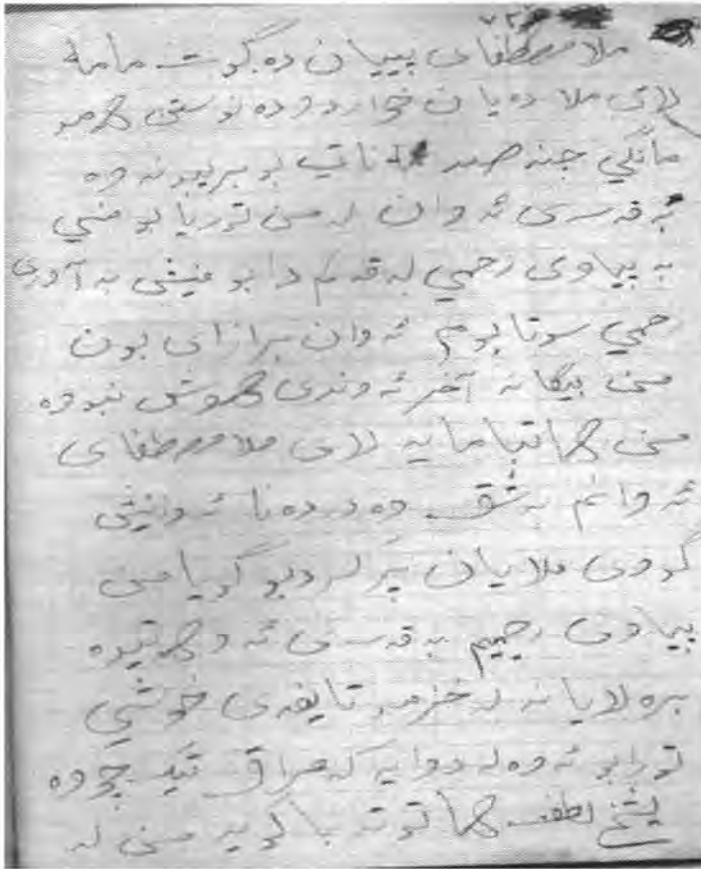 ملا مصطفای پییان ده گوت مامه
لای ملا ده یان خوارد و ده نوستی هرمو
مانگی جنه صد نانی بو بریبونه وه
به قه سری ئه وان له من توریا بو منی
به پیاوی رحمی له قه لم دا بو منیشی به آوری
رحمی سوتا بوم ئه وان برازای بون
من بیگانه آخر ئه وندی هوش نبووه
من هاتبامایه لای ملا مصطفای
ئه وانم به شق وه ده نا ئه وانیشی
گووی ملایان پر کردبو گویا من
پیاوی رحیم به قه سی ئه و
بره لایانه له خزم تایفه ی خوشی
تورابو ئه وه له دوایه که عراق تیک چووه
شیخ لطف هاتوته با کویه منی له